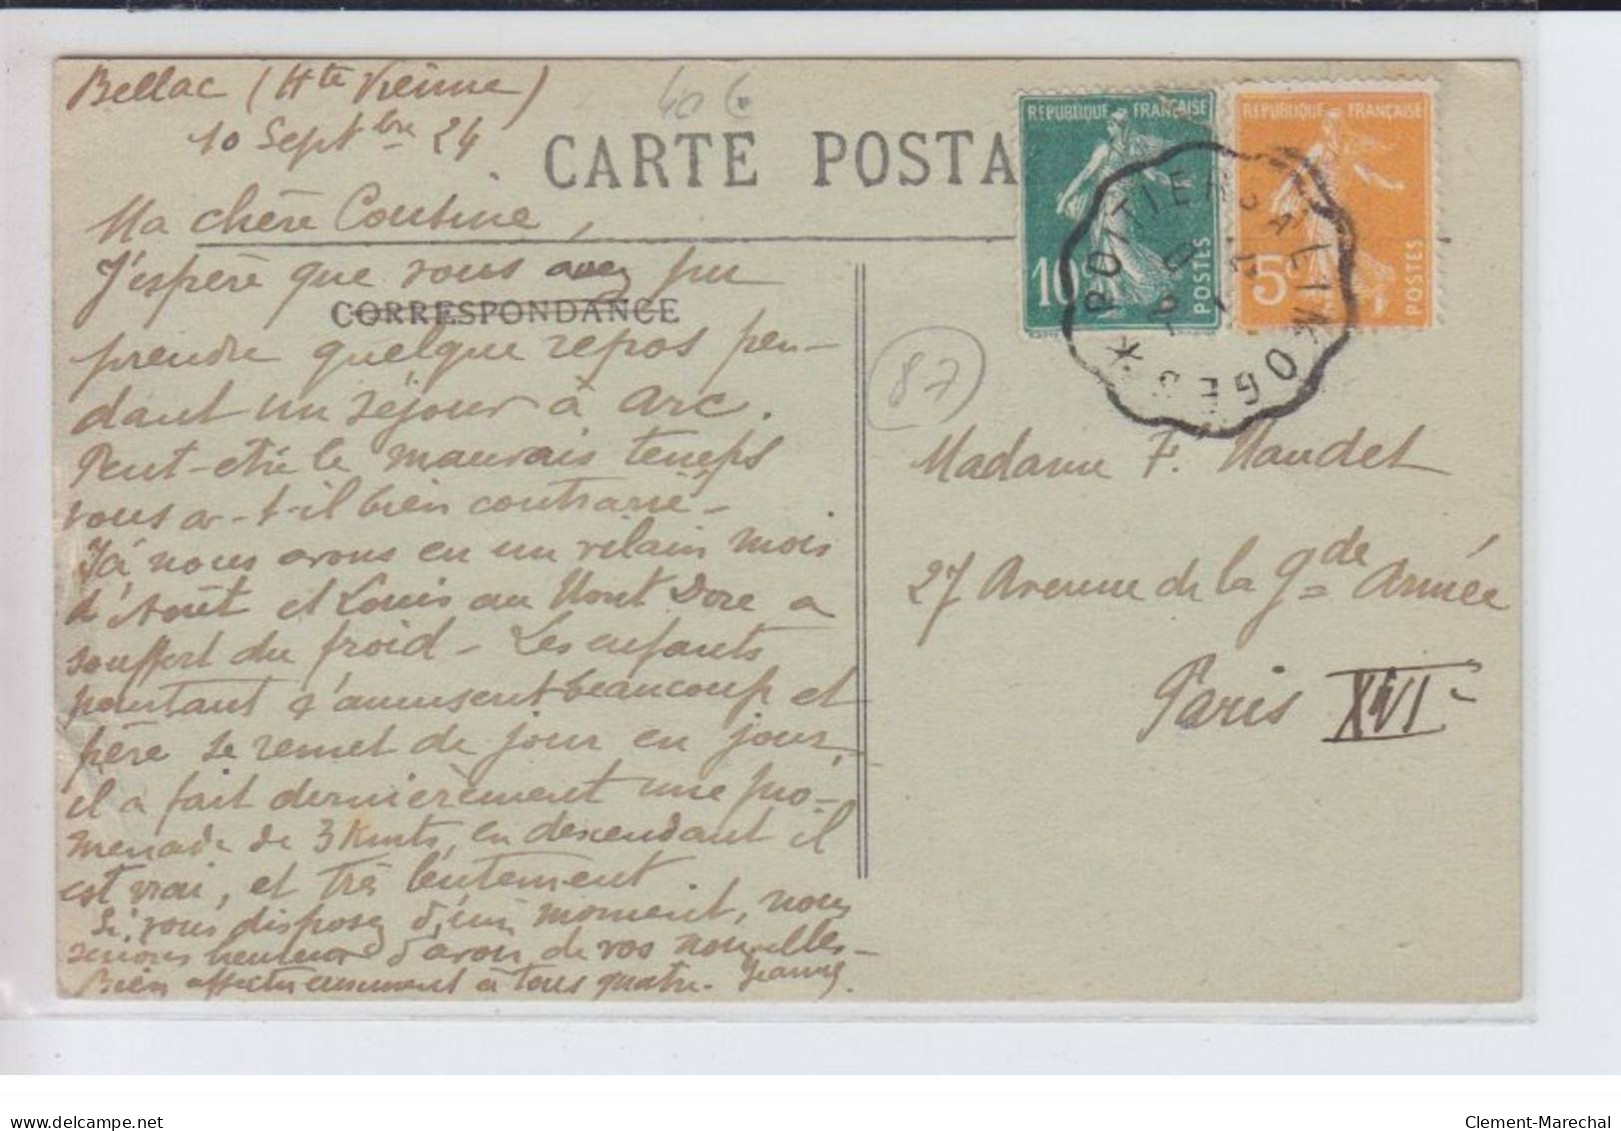 Bellac (Hte Vienne)
10 Septbre 24
40 €
CARTE POSTA
REPUBLIQUE FRANÇAISE
10
POSTES
REPUBLIQUE FRANÇAISE
5
POSTES
POITIERS A LIMOGES *
Ma chère Cousine,
J'espère que vous avez pu
CORRESPONDANCE
prendre quelque repos pen-
dant un séjour à Arc.
Peut-être le mauvais temps
vous a-t-il bien contrarié-
Ici nous avons eu un vilain mois
d'Août et Louis au Mont Dore a
souffert du froid - Les enfants
pourtant s'amusent beaucoup et
père se remet de jour en jour,
il a fait dernièrement une pro-
menade de 3 Kmts, en descendant il
est vrai, et très lentement
Si vous disposez d'un moment, nous
serions heureux d'avoir de vos nouvelles-
Bien affectueusement à tous quatre. Jeanne.
87
Madame F. Naudet
27 Avenue de la Gde Armée
Paris XVIe
delcampe.net
Clement-Marechal